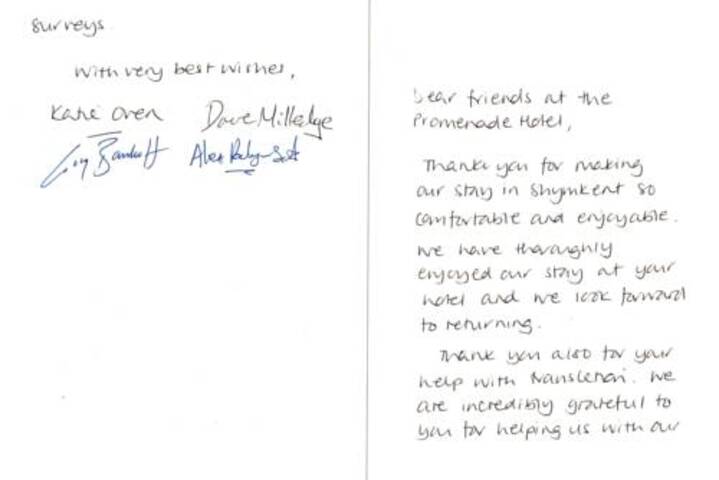 Dear friends at the
Promenade Hotel,
Thank you for making
our stay in Shymkent so
comfortable and enjoyable.
We have thoroughly
enjoyed our stay at your
hotel and we look forward
to returning.
Thank you also for your
help with translation. We
are incredibly grateful to
you for helping us with our
surveys.
With very best wishes,
Katie Oven Dave Milledge
Alex